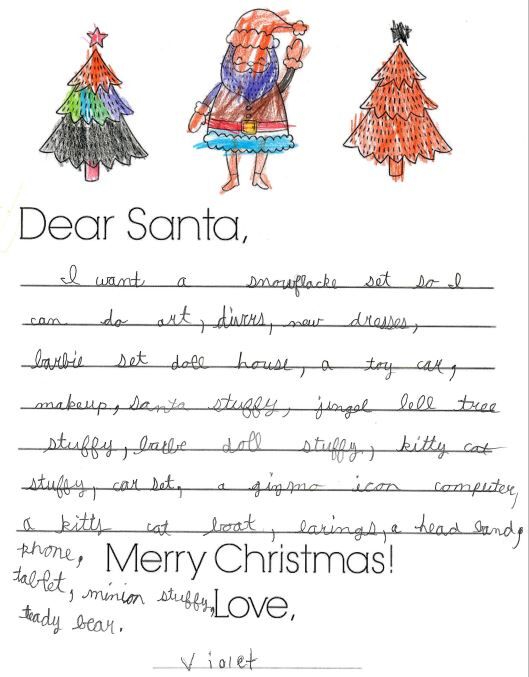 Dear Santa,
I want a snowflacke set so I
can do art, divrrs, new dresses,
barbie set doll house, a toy car,
makeup, santa stuffy, jingel lell tree
stuffy, barbe doll stuffy, kitty cat
stuffy, car set, a gizmo icon computer,
a kitty cat boat, earings, a head band,
phone, Merry Christmas!
tablet, minion stuffy, Love,
teady bear.
Violet